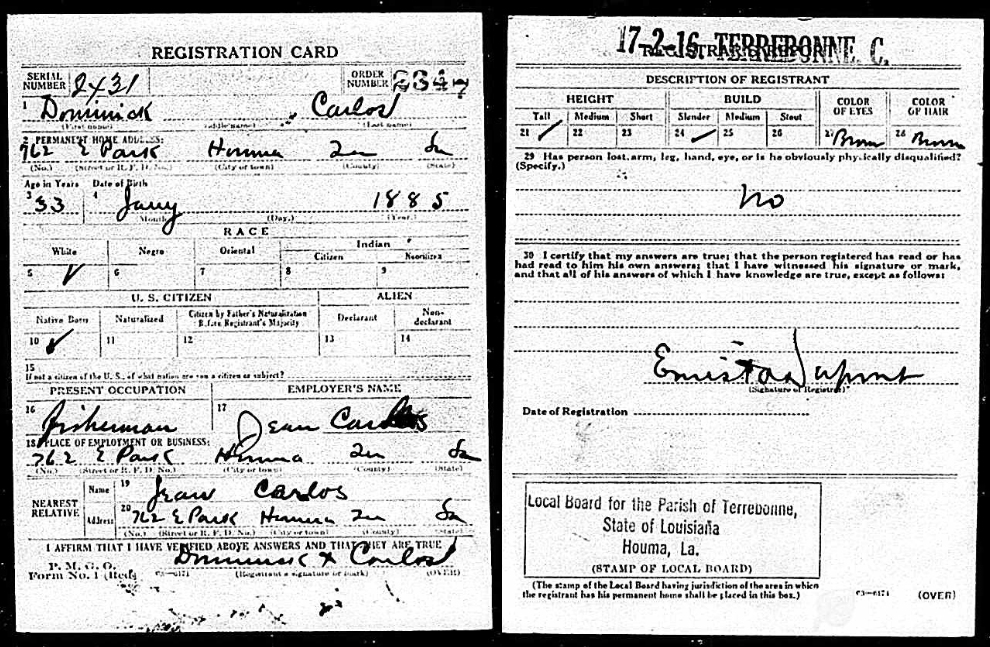 REGISTRATION CARD
SERIAL NUMBER 2431 ORDER NUMBER
1 Dominick Carlos
(First name) (Middle name) (Last name)
2 PERMANENT HOME ADDRESS:
762 E Park Houma Ter La
(No.) (Street or R. F. D. No.) (City or town) (County) (State)
Age in Years Date of Birth
3 33 4 Jany 1885
(Month.) (Day.) (Year.)
RACE
White Negro Oriental Indian
Citizen Noncitizen
5 ✓ 6 7 8 9
U. S. CITIZEN ALIEN
Native Born Naturalized Citizen by Father's Naturalization Before Registrant's Majority Declarant Non-declarant
10 ✓ 11 12 13 14
15
If not a citizen of the U. S., of what nation are you a citizen or subject?
PRESENT OCCUPATION EMPLOYER'S NAME
16 fisherman 17 Jean Carlos
18 PLACE OF EMPLOYMENT OR BUSINESS:
762 E Park Houma Ter La
(No.) (Street or R. F. D. No.) (City or town) (County) (State)
NEAREST RELATIVE
Name 19 Jean Carlos
Address 20 762 E Park Houma Ter La
(No.) (Street or R. F. D. No.) (City or town) (County) (State)
I AFFIRM THAT I HAVE VERIFIED ABOVE ANSWERS AND THAT THEY ARE TRUE
Dominick x Carlos
P. M. G. O.
Form No. 1 (Red) 03-6171 (Registrant's signature or mark) (OVER)
17-2-16 TERREBONNE, C.
REGISTRAR'S REPORT
DESCRIPTION OF REGISTRANT
HEIGHT BUILD COLOR OF EYES COLOR OF HAIR
Tall Medium Short Slender Medium Stout
21 ✓ 22 23 24 ✓ 25 26 27 Brown 28 Brown
29 Has person lost arm, leg, hand, eye, or is he obviously physically disqualified?
(Specify.)
no
30 I certify that my answers are true; that the person registered has read or has
had read to him his own answers; that I have witnessed his signature or mark,
and that all of his answers of which I have knowledge are true, except as follows:
Dupont
(Signature of Registrar)
Date of Registration
Local Board for the Parish of Terrebonne,
State of Louisiana
Houma, La.
(STAMP OF LOCAL BOARD)
(The stamp of the Local Board having jurisdiction of the area in which
the registrant has his permanent home shall be placed in this box.)
03-6171 (OVER)